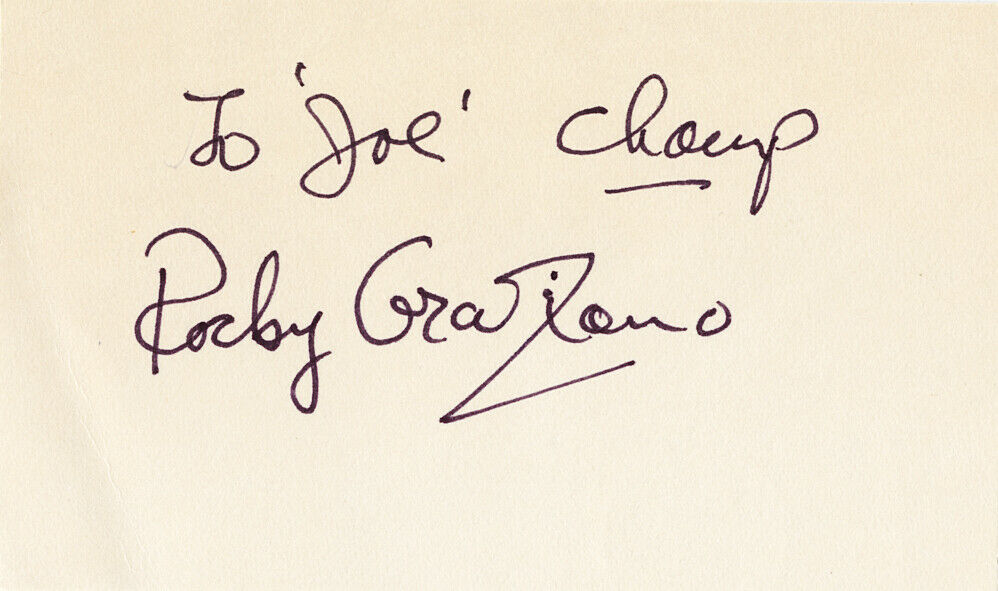 To 'Joe' Champ
Rocky Graziano